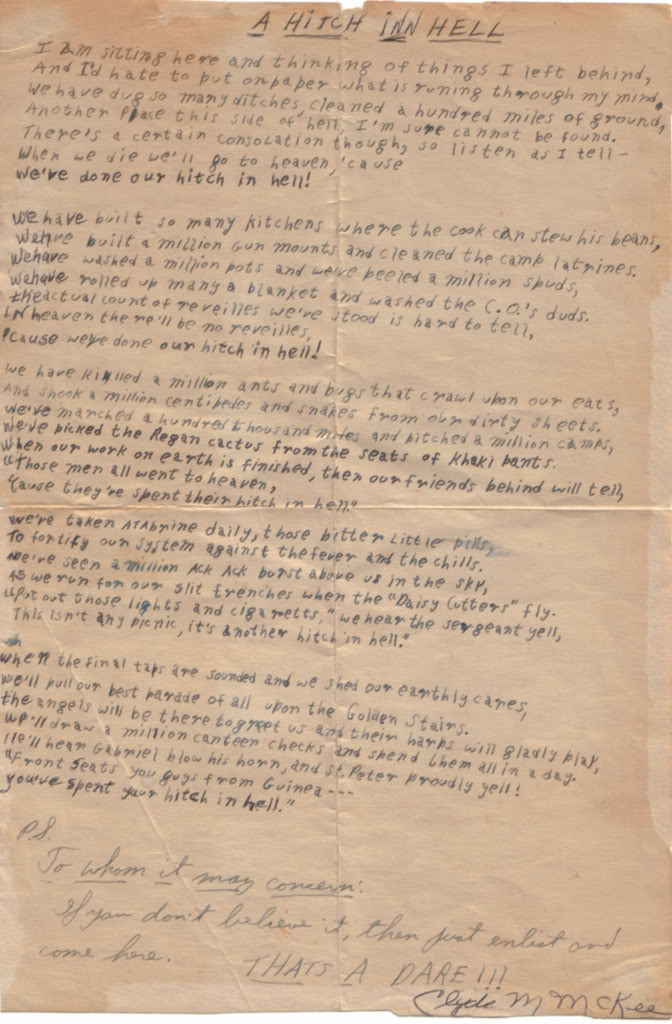 A HITCH INN HELL
I am sitting here and thinking of things I left behind,
And I'd hate to put on paper what is runing through my mind.
We have dug so many ditches, cleaned a hundred miles of ground,
Another place this side of hell, I'm sure cannot be found.
There's a certain consolation though, so listen as I tell -
When we die we'll go to heaven, 'cause
We've done our hitch in hell!
We have built so many kitchens where the cook can stew his beans,
We have built a million Gun mounts and cleaned the camp latrines.
We have washed a million pots and we've peeled a million spuds,
We have rolled up many a blanket and washed the C.O.'s duds.
The actual count of reveilles we've stood is hard to tell,
In heaven there'll be no reveilles,
'Cause we've done our hitch in hell!
We have killed a million ants and bugs that crawl upon our eats,
And shook a million centipedes and snakes from our dirty sheets.
We've marched a hundred thousand miles and pitched a million camps,
We've picked the Regan cactus from the seats of khaki pants.
When our work on earth is finished, then our friends behind will tell,
"Those men all went to heaven,
'Cause they're spent their hitch in hell."
We've taken ATAbrine daily, those bitter Little pills,
To fortify our system against the fever and the chills.
We've seen a million Ack Ack burst above us in the sky,
As we run for our slit trenches when the "Daisy Cutters" fly.
"Put out those lights and cigaretts," we hear the sergeant yell,
This isn't any picnic, it's another hitch in hell."
When the final taps are sounded and we shed our earthly cares,
We'll pull our best parade of all upon the Golden Stairs.
The angels will be there to greet us and their harps will gladly play,
We'll draw a million canteen checks and spend them all in a day.
We'll hear Gabriel blow his horn, and St. Peter proudly yell!
"Front seats you guys from Guinea ---
You've spent your hitch in hell."
P.S.
To whom it may concern:
If you don't believe it, then just enlist and
come here. THATS A DARE!!!
Clyde M McKee